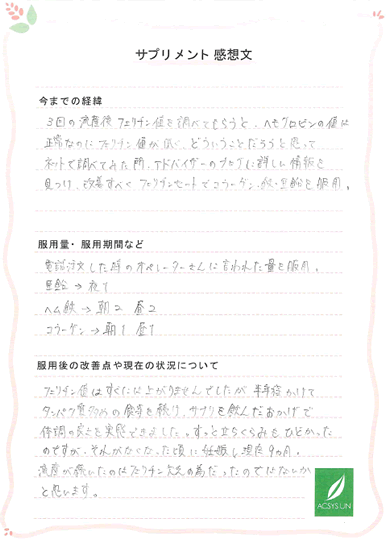 サプリメント 感想文
今までの経緯
3回の流産後フェリチン値を調べてもらうと、ヘモグロビンの値は
正常なのにフェリチン値が低く、どういうことだろうと思って
ネットで調べてみた所、アドバイザーのブログに詳しい情報を
見つけ、改善すべくフェリチンセットでコラーゲン、鉄、亜鉛を服用。
服用量・服用期間など
電話注文した時のオペレーターさんに言われた量を服用。
亜鉛→夜1
ヘム鉄→朝2 昼2
コラーゲン→朝1 昼1
服用後の改善点や現在の状況について
フェリチン値はすぐには上がりませんでしたが、半年かけて
タンパク質多めの食事を摂り、サプリを飲んだおかげで
体調の良さを実感できました。ずっと立ちくらみもひどかった
のですが、それがなくなった頃に妊娠し現在9ヵ月。
流産が続いたのはフェリチン欠乏の為だったのではないか
と思います。
ACSYSUN